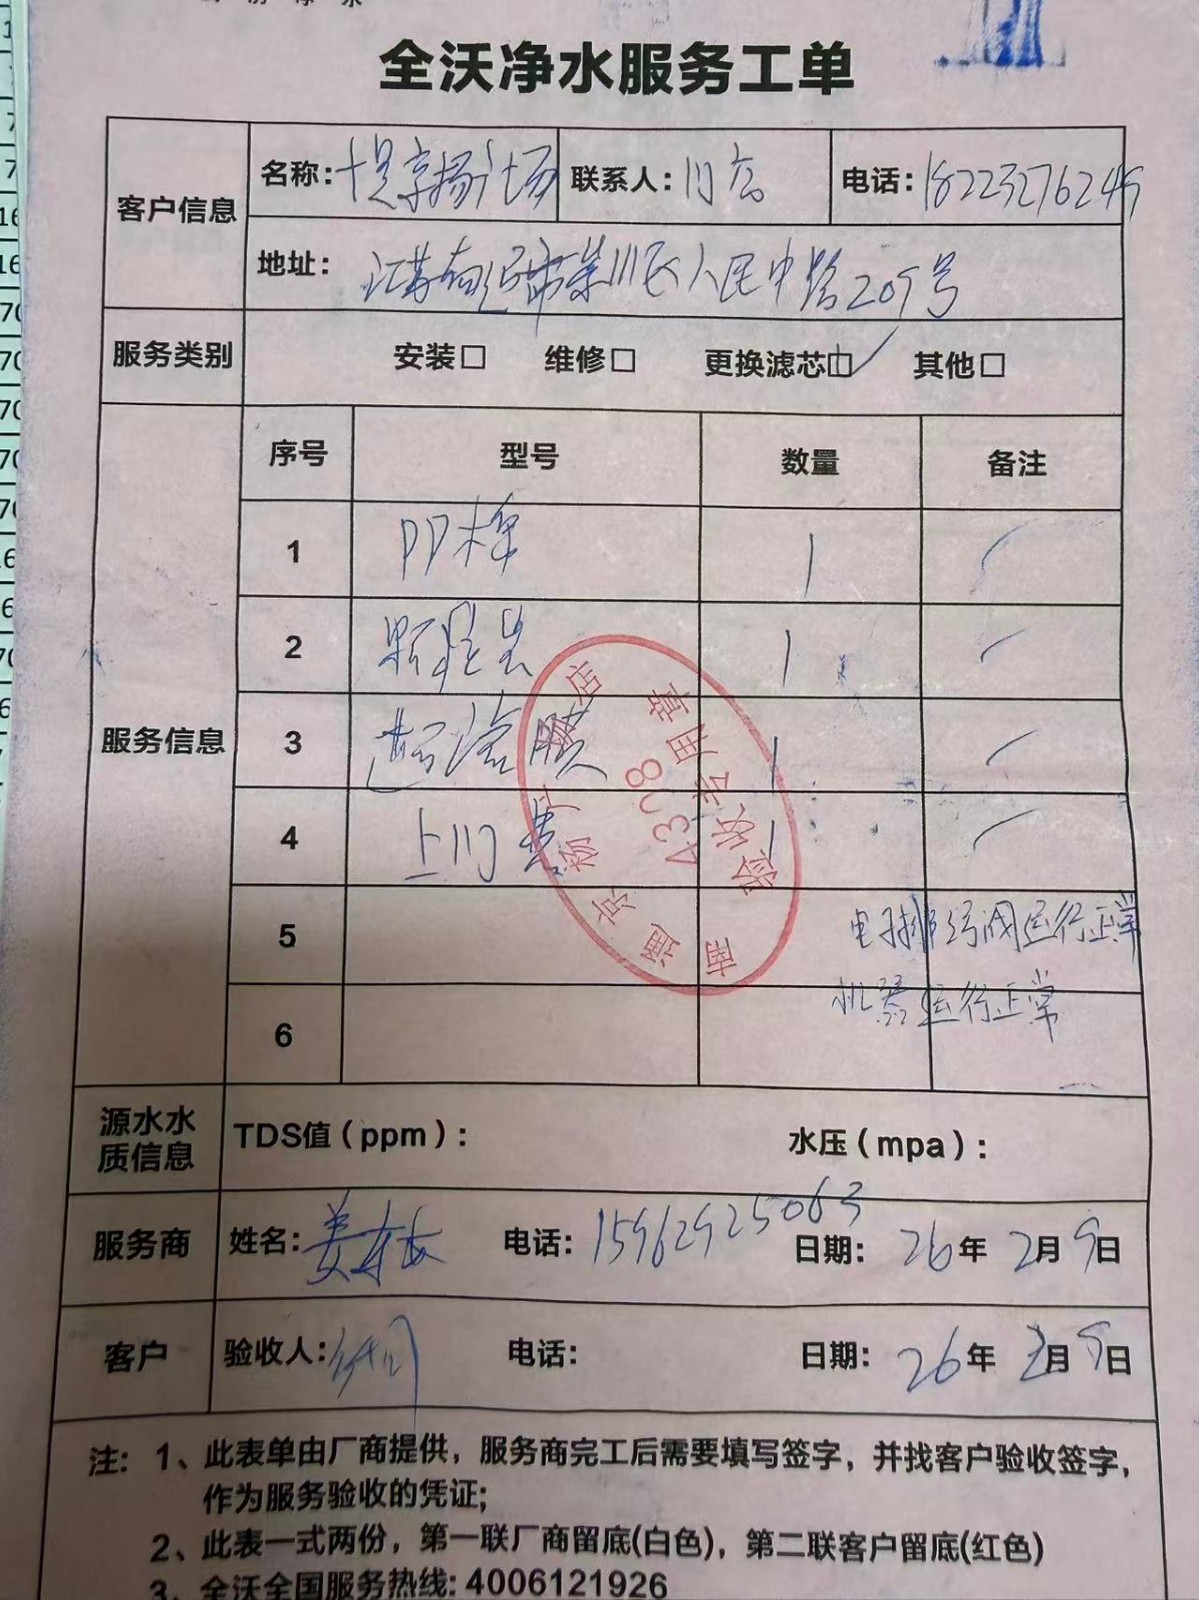 全沃净水服务工单
客户信息
名称: 京扬广场 联系人: 门店 电话: 18223276249
地址: 江苏南通市崇川区人民中路209号
服务类别 安装□ 维修□ 更换滤芯☑ 其他□
服务信息
序号 型号 数量 备注
1 PP棉 1
2 颗粒炭 1
3 超滤膜 1
4 上门费 1
5 电子排污阀运行正常
6 机器运行正常
南通京扬广场店
4308
验收专用章
源水水质信息 TDS值(ppm): 水压(mpa):
服务商 姓名: 电话: 15962925063 日期: 26年2月9日
客户 验收人: 电话: 日期: 26年2月9日
注: 1、此表单由厂商提供，服务商完工后需要填写签字，并找客户验收签字，
作为服务验收的凭证;
2、此表一式两份，第一联厂商留底(白色)，第二联客户留底(红色)
3、全沃全国服务热线: 4006121926